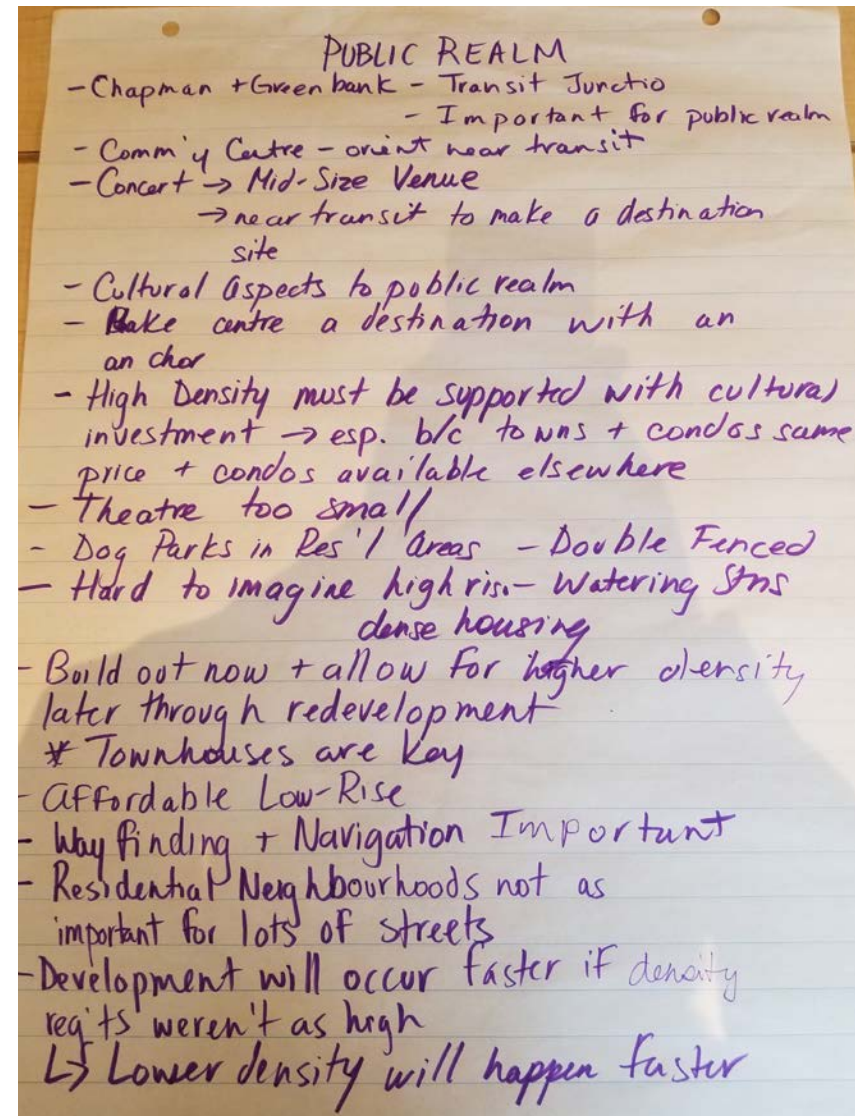 PUBLIC REALM
- Chapman + Greenbank - Transit Junctio
- Important for public realm
- Comm'y Centre - orient near transit
- Concert → Mid-Size Venue
→ near transit to make a destination
site
- Cultural aspects to public realm
- Make centre a destination with an
anchor
- High Density must be supported with cultural
investment → esp. b/c towns + condos same
price + condos available elsewhere
- Theatre too small
- Dog Parks in Res'l Areas - Double Fenced
- Hard to imagine high ris. - Watering Stns
dense housing
- Build out now + allow for higher density
later through redevelopment
* Townhouses are Key
- Affordable Low-Rise
- Way finding + Navigation Important
- Residential Neighbourhoods not as
important for lots of streets
- Development will occur faster if density
req'ts weren't as high
↳ Lower density will happen faster